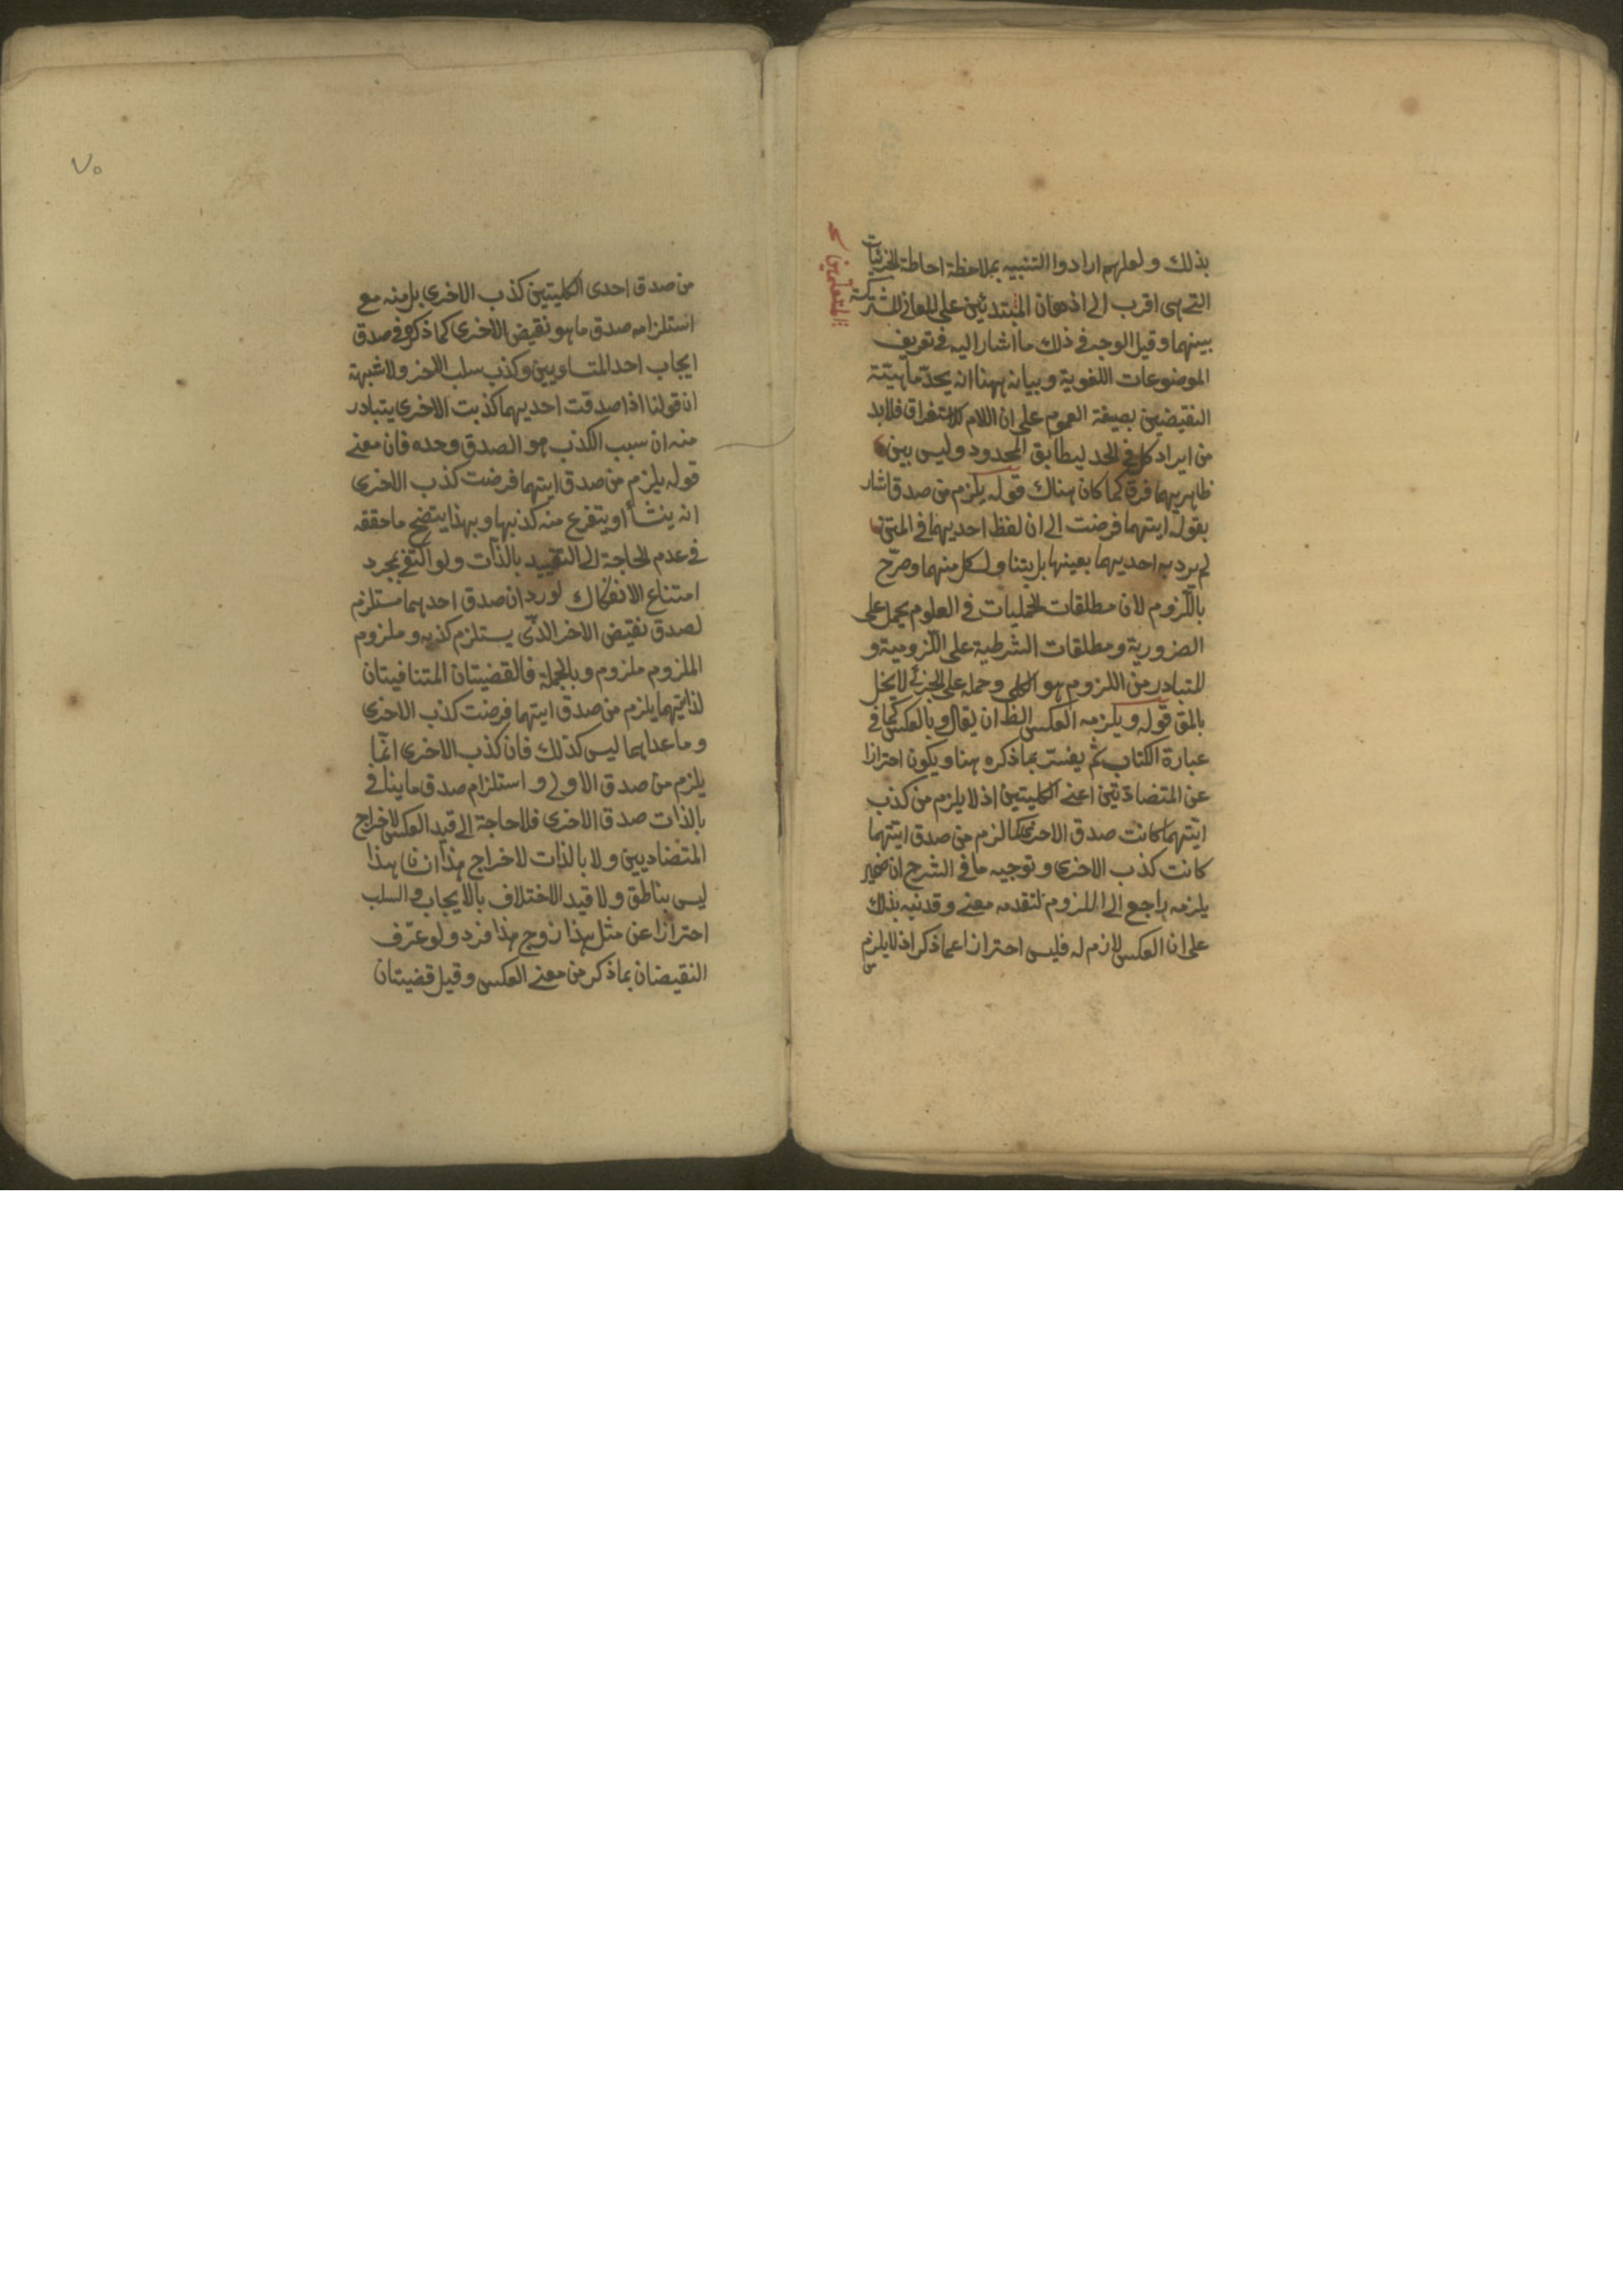 بذلك ولعلهم ارادوا التنبيه بملاحظة احاطة الجزئيات
التے هى اقرب الى اذهان المبتدئين على المعانى المشتركة
المتعلمين
بينهما وقيل الوجه فى ذلك ما اشار اليه فى تعريف
الموضوعات اللغوية وبيانه ههنا انه يحدّ ماهيّة
النقيضين بصيغة العموم على ان اللام للاستغراق فلا بد
من ايراد كل فى الحد ليطابق المحدود وليس بين
ظاهريهما فرق كما كان هناك قوله يلزم من صدق اشار
بقوله ايتهما فرضت الى ان لفظ احديهما فى المتن
لم يرد به احديهما بعينها بل يتناول كل منهما وصرّح
باللّزوم لان مطلقات الحمليات فى العلوم يحمل على
الضرورية ومطلقات الشرطية على اللّزومية و
المتبادر من اللزوم هو الكلى وحمله على الجزئى لا يخل
بالمق قوله ويلزمه العكس الظ ان يقال وبالعكس كما فى
عبارة الكتاب ثم يفسّر بما ذكره هنا ويكون احترازا
عن المتضادّتين اعنے الكليتين اذ لا يلزم من كذب
ايّتهما كانت صدق الاخرى كما لزم من صدق ايّتهما
كانت كذب الاخرى وتوجيه ما فى الشرح ان ضمير
يلزمه راجع الى اللزوم لتقدمه معنے وقد نبه بذلك
على ان العكس لازم له فليس احترازا عما ذكر اذ لا يلزم
من
٧٥
من صدق احدى الكليتين كذب الاخرى بل منه مع
استلزامه صدق ما هو نقيض الاخرى كما ذكره فى صدق
ايجاب احد المتساويين وكذب سلب الاخر ولا شبهة
ان قولنا اذا صدقت احديهما كذبت الاخرى يتبادر
منه ان سبب الكذب هو الصدق وحده فان معنے
قوله يلزم من صدق ايتهما فرضت كذب الاخرى
انه ينشأ او يتفرع منه كذبها وبهذا يتضح ما حققه
فى عدم الحاجة الى التقييد بالذات ولو اكتفى بمجرد
امتناع الانفكاك لورد ان صدق احدهما مستلزم
لصدق نقيض الاخر الذى يستلزم كذبه وملزوم
الملزوم ملزوم وبالجملة فالقضيتان المتنافيتان
لذاتيهما يلزم من صدق ايتهما فرضت كذب الاخرى
وما عداهما ليس كذلك فان كذب الاخرى انّما
يلزم من صدق الاولى و استلزام صدق ما ينافى
بالذات صدق الاخرى فلا حاجة الى قيد العكس لاخراج
المتضاديين ولا بالذات لاخراج هذا انسان هذا
ليس بناطق ولا قيد الاختلاف بالايجاب والسلب
احترازا عن مثل هذا زوج هذا فرد ولو عرّف
النقيضان بما ذكر من معنے العكس وقيل قضيتان